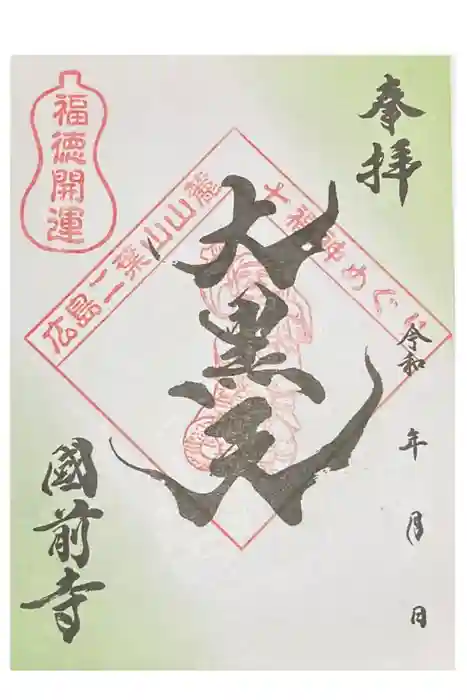 奉拝
令和　年　月　日
福徳開運
広島二葉山山麓
七福神めぐり
大黒天
國前寺